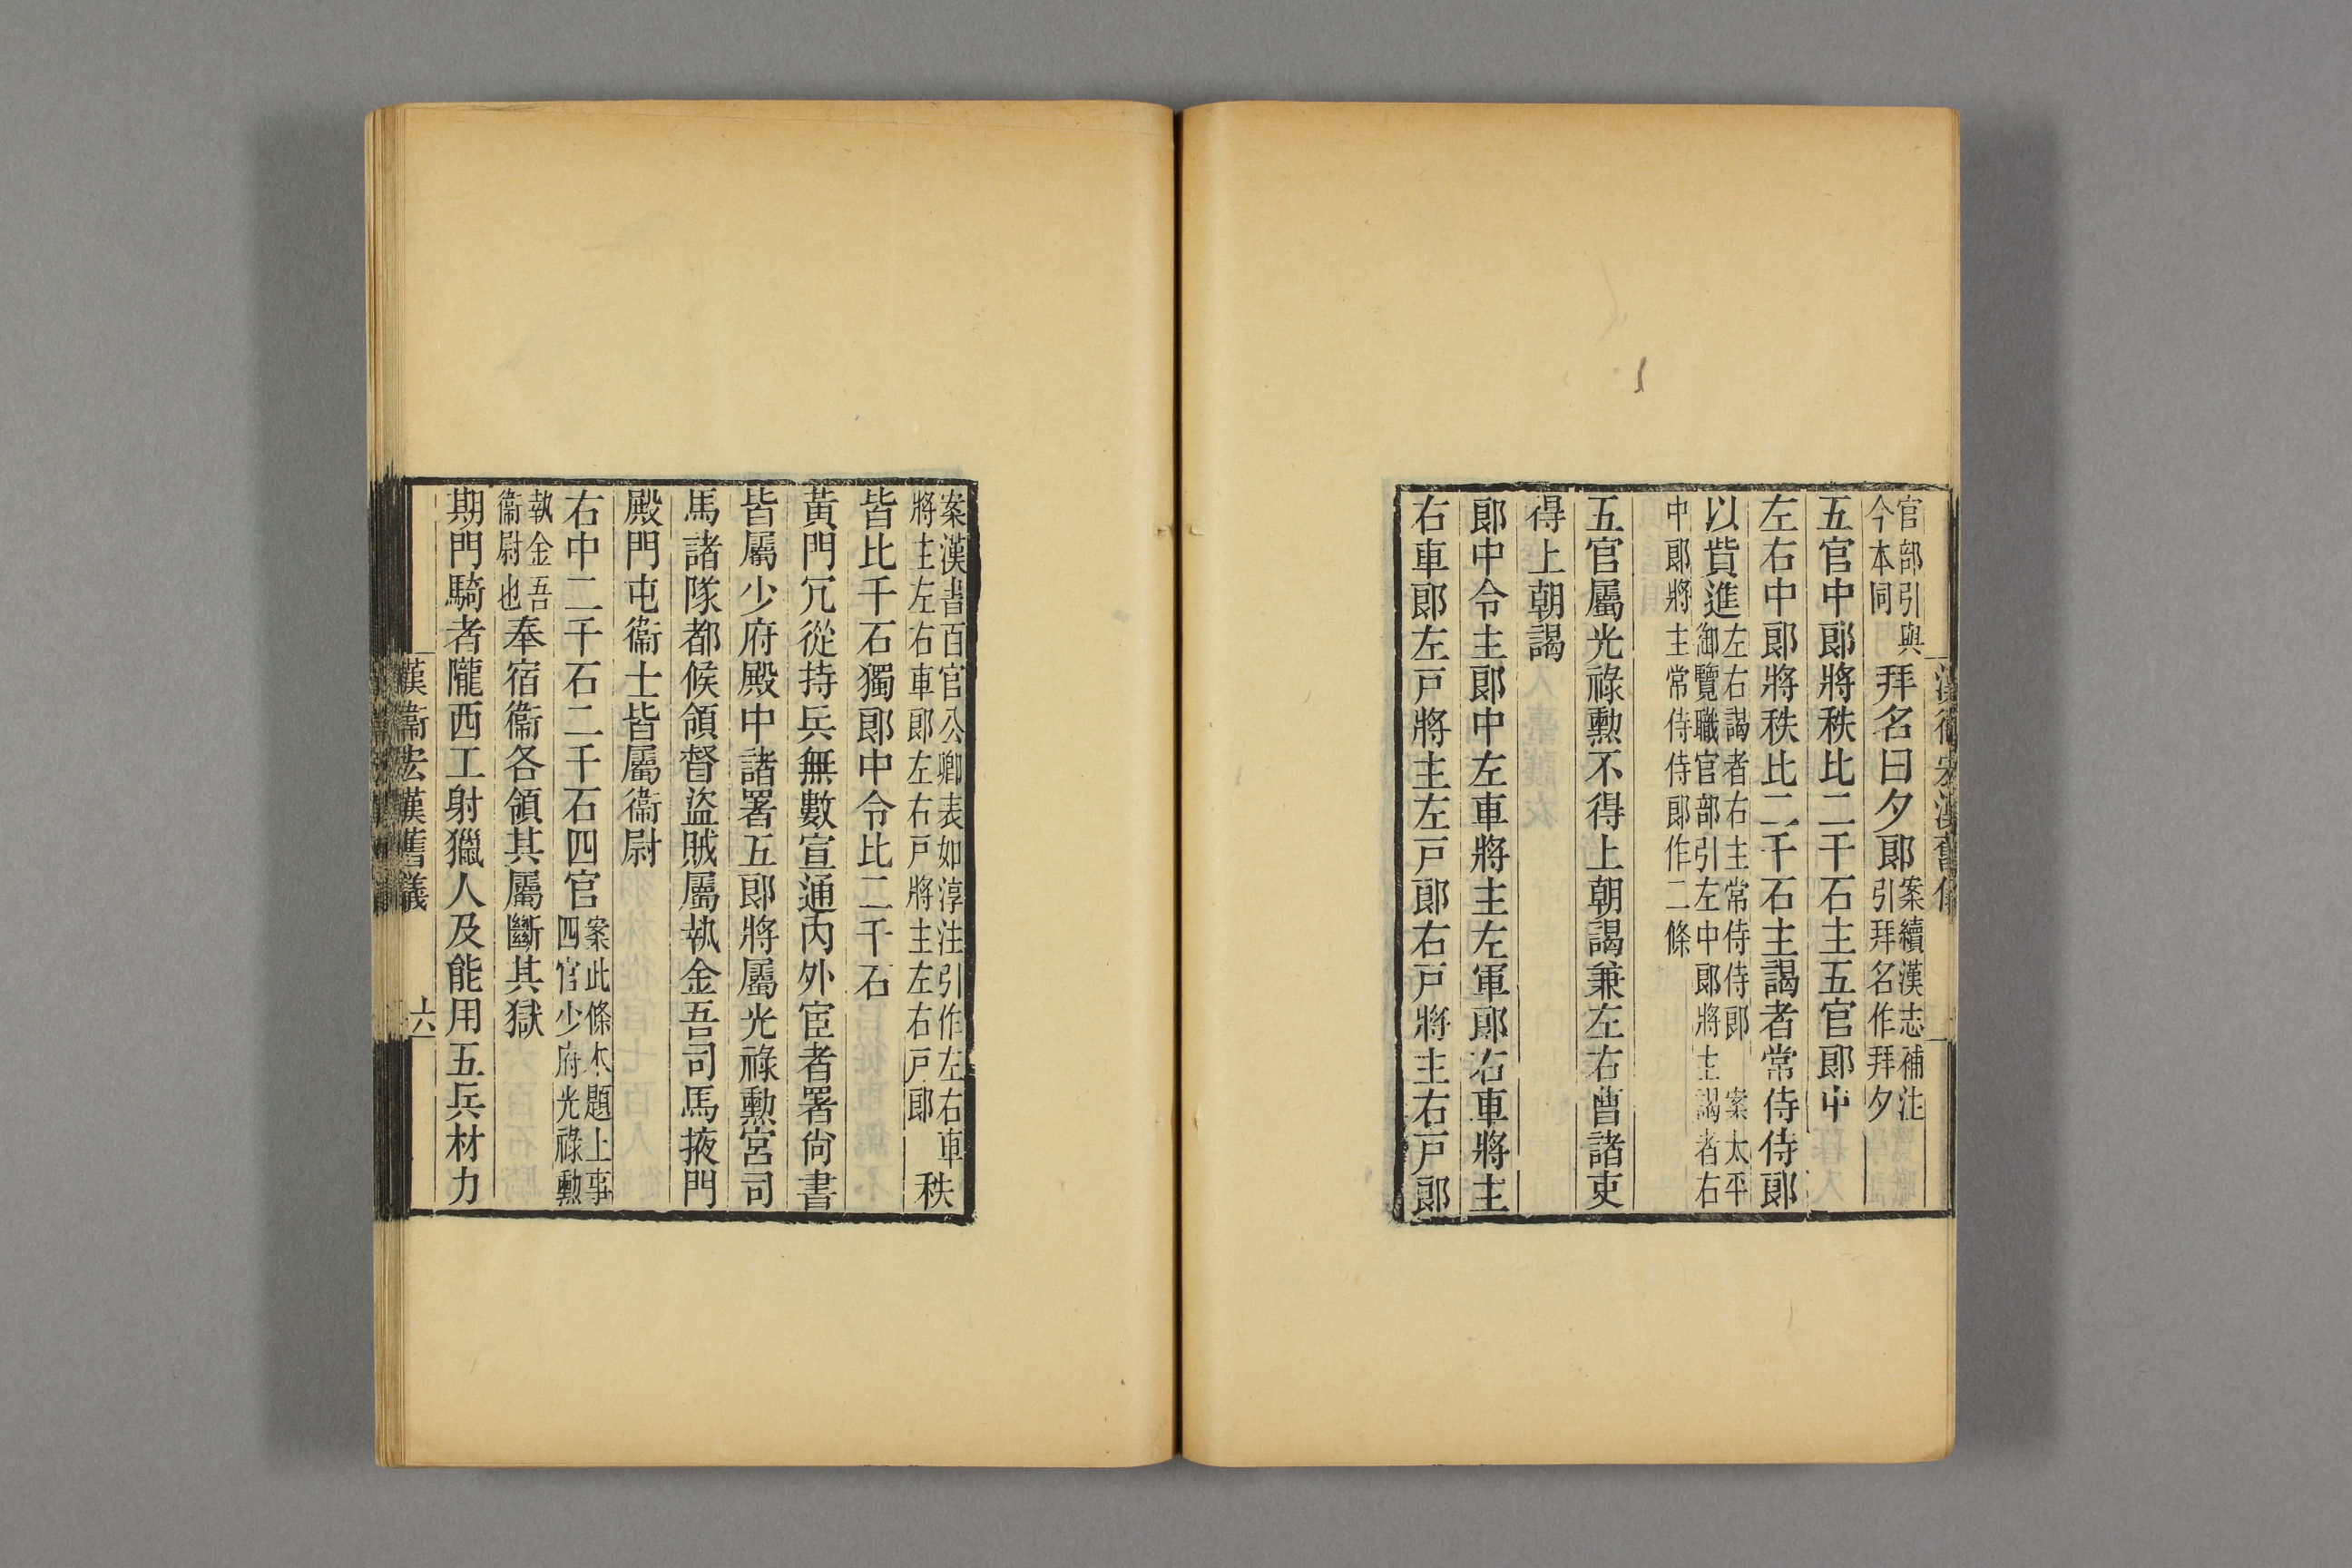 漢衞宏漢舊儀
官部引與
今本同
拜名曰夕郎
案續漢志補注
引拜名作拜夕
五官中郎將秩比二千石主五官郎中
左右中郎將秩比二千石主謁者常侍侍郎
以貲進
左右謁者右主常侍侍郎 案太平
御覽職官部引左中郎將主謁者右
中郎將主常侍侍郎作二條
五官屬光祿勳不得上朝謁兼左右曹諸吏
得上朝謁
郎中令主郎中左車將主左軍郎右車將主
右車郎左戸將主左戸郎右戸將主右戸郎
案漢書百官公卿表如淳注引作左右車
將主左右車郎左右戸將主左右戸郎
秩
皆比千石獨郎中令比二千石
黃門冗從持兵無數宣通內外宦者署尙書
皆屬少府殿中諸署五郎將屬光祿勳宮司
馬諸隊都候領督盜賊屬執金吾司馬掖門
殿門屯衞士皆屬衞尉
右中二千石二千石四官
案此條本題上事
四官少府光祿勳
執金吾
衞尉也
奉宿衞各領其屬斷其獄
期門騎者隴西工射獵人及能用五兵材力
漢衞宏漢舊儀 六